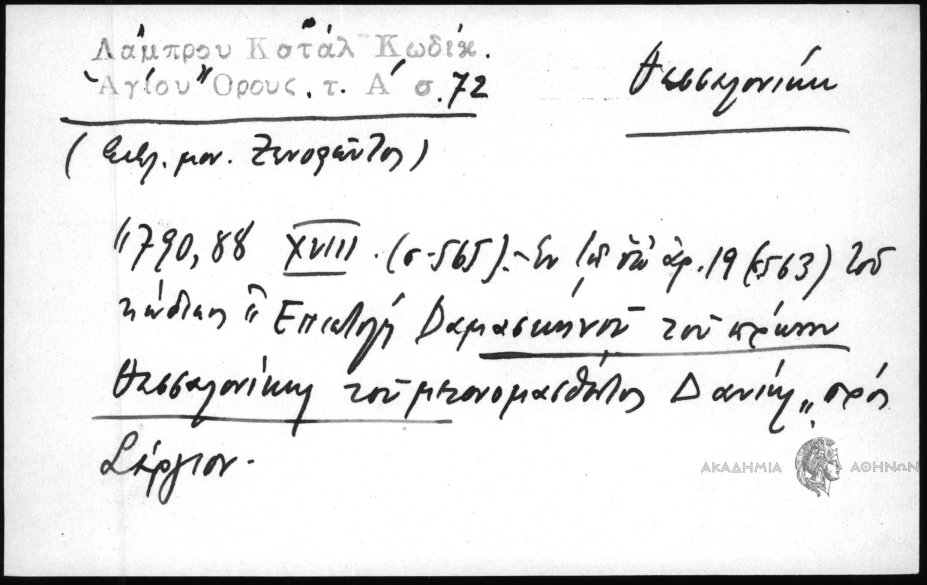 Λάμπρου Κατάλ. Κωδίκ.
Ἁγίου Ὄρους, τ. Α' σ. 72
Θεσσαλονίκη
(μον. Ξενοφῶντος)
"790, 88 XVIII. (σ. 565). Ἐν ἀρ. 19 (σ. 563) τοῦ
κώδικος "Ἐπιστολὴ Δαμασκηνοῦ τοῦ πρώην
Θεσσαλονίκης τοῦ μετονομασθέντος Δανιὴλ" πρὸς
Σέργιον.
ΑΚΑΔΗΜΙΑ ΑΘΗΝΩΝ